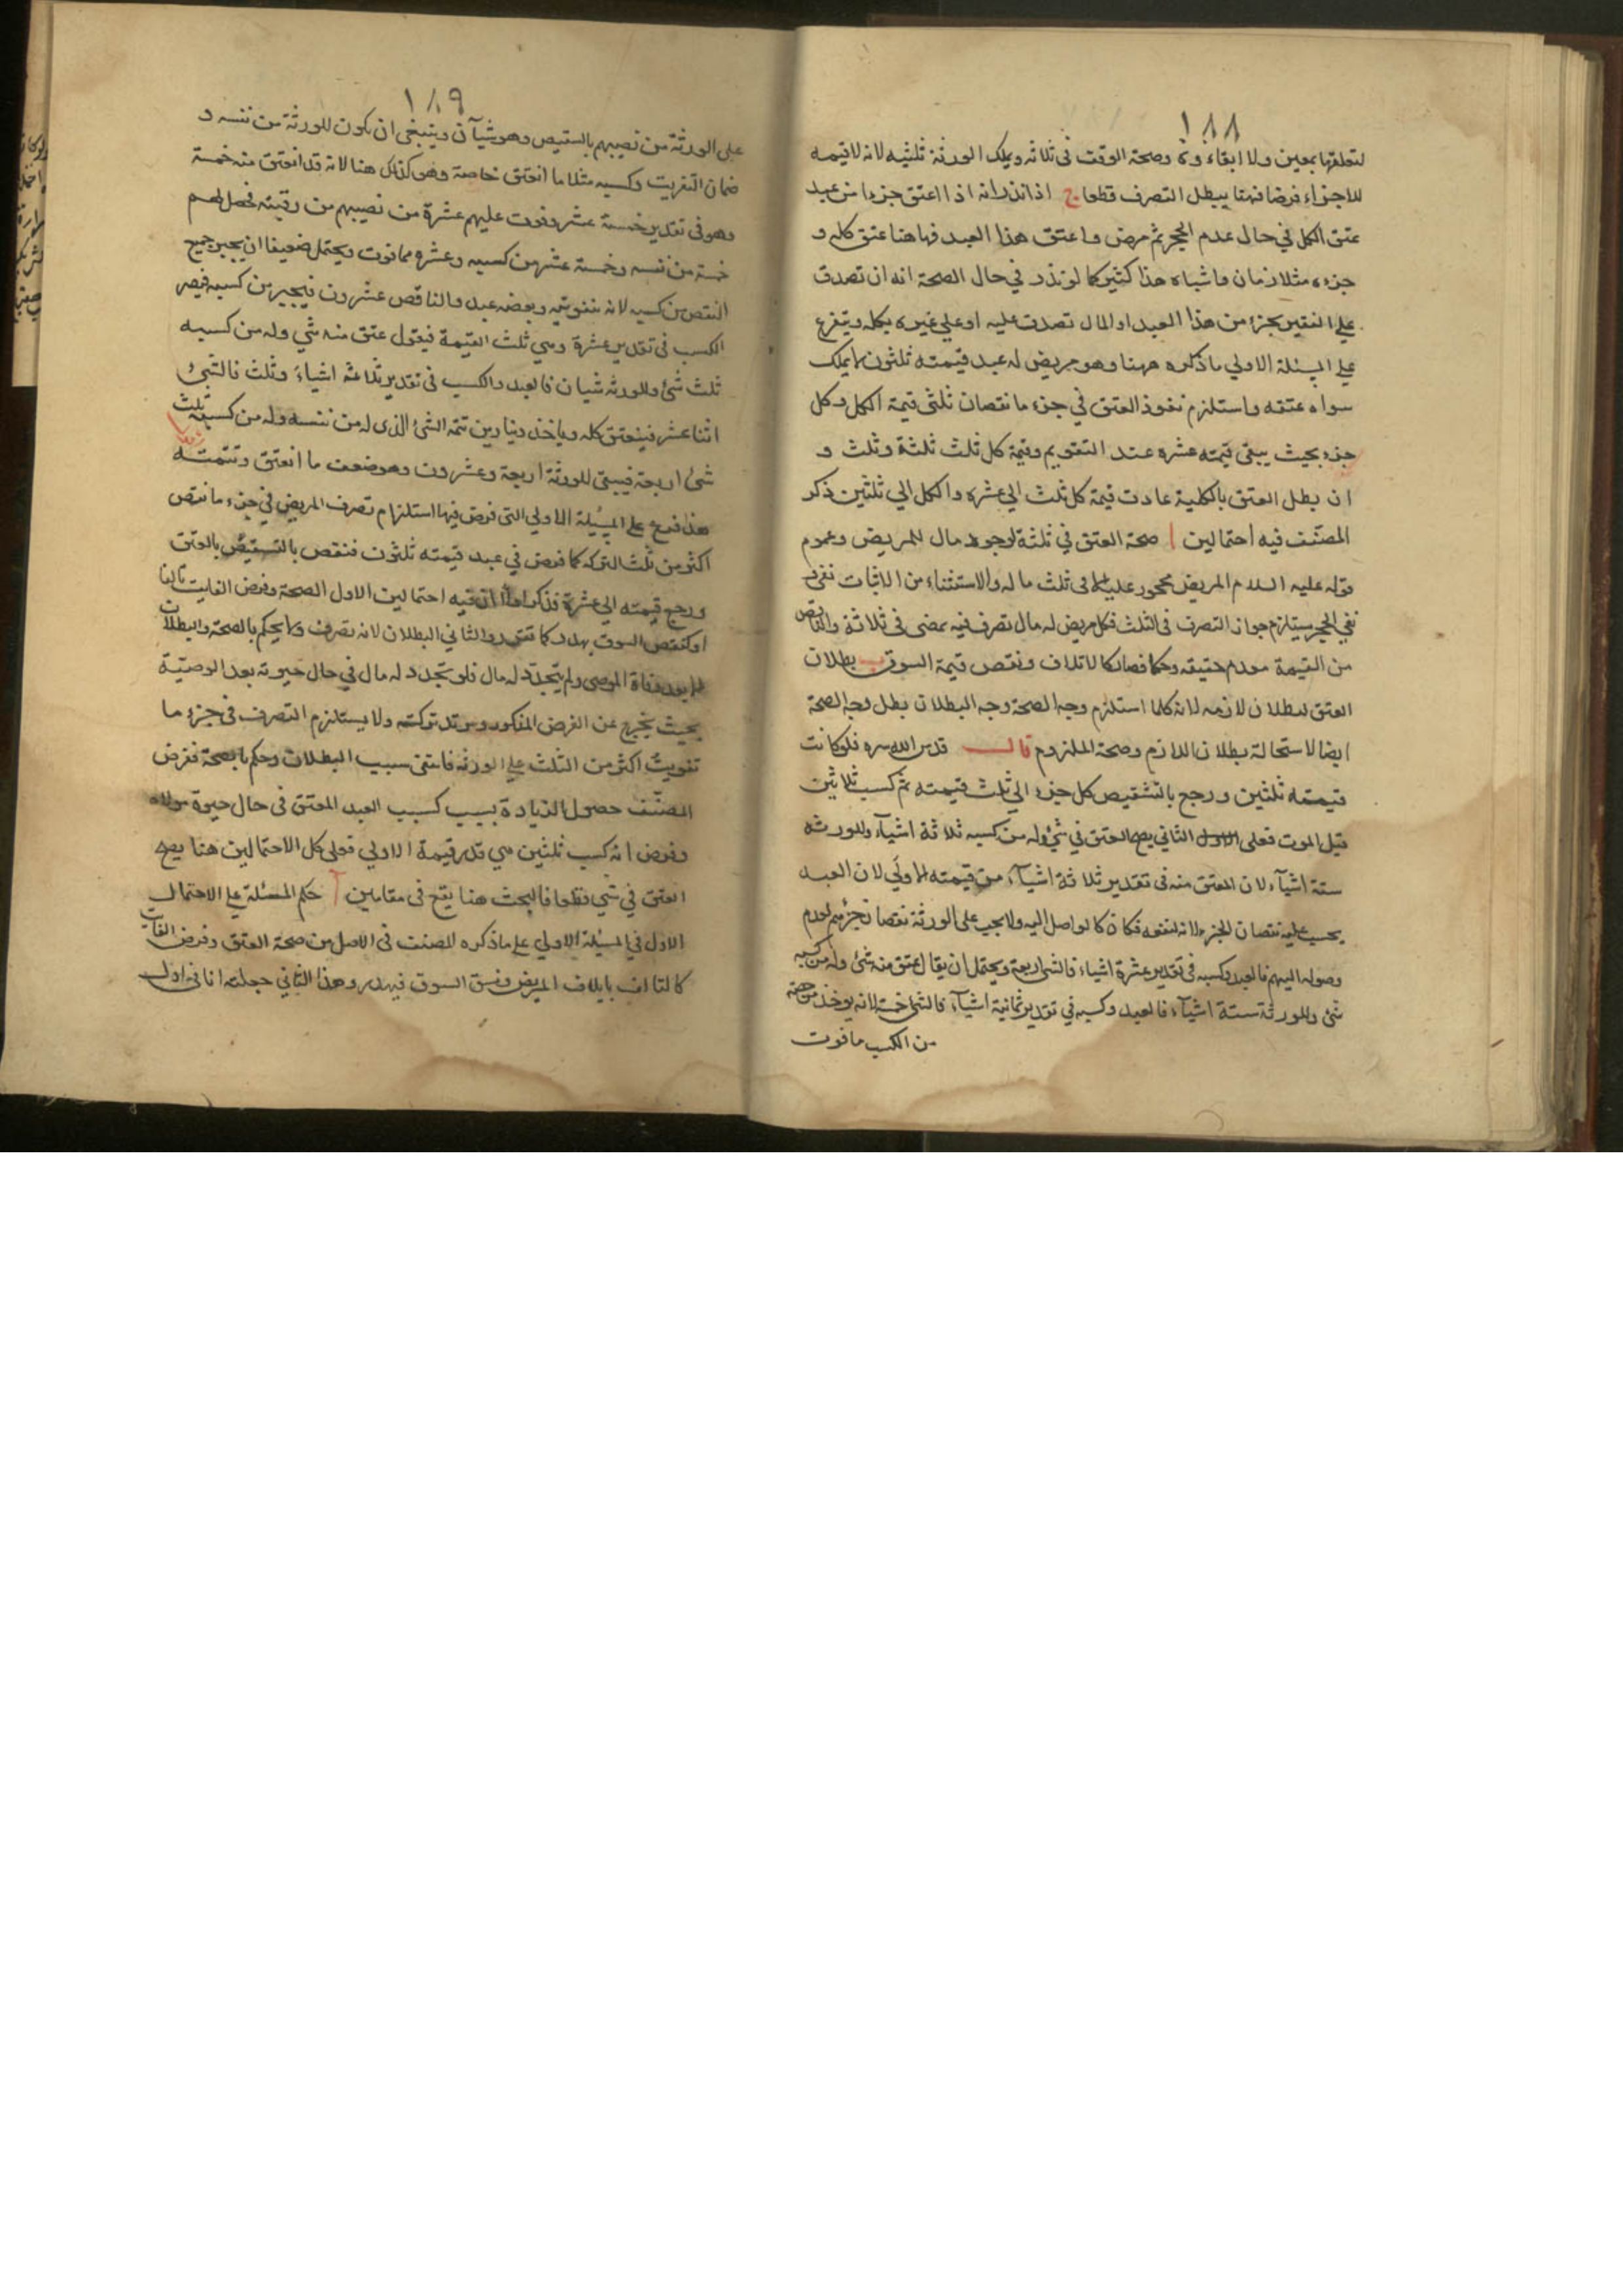 ١٨٨
لتعلقها بمعين ولا ابقاء وة وصحة الوقت فى ثلاثه ويملك الورثة ثلثيه لانه لا قيمه
للاجزاء فرضا فهنا يبطل التصرف قطعا ج اذا نذر انه اذا اعتق جزءا من عبد
عتق الكل في حال عدم الحجر ثم مرض واعتق هذا العبد فها هنا عتق كله و
جزءه متلازمان واشباه هذا كثير كما لو نذر في حال الصحة انه ان تصدق
على الفقير بجزء من هذا العبد او المال تصدق عليه او على غيره بكله ويتفرع
على المسئلة الاولي ما ذكره ههنا وهو مريض له عبد قيمته ثلثون لا يملك
سواه عتقه واستلزم نفوذ العتق في جزء ما نقصان ثلثى قيمة الكل وكل
جزء بحيث يبقى قيمته عشره عند التقويم وقيمة كل ثلث ثلثة وثلث و
ان بطل العتق بالكلية عادت قيمة كل ثلث الي عشره والكل الي ثلثين ذكر
المصنف فيه احتمالين ا صحة العتق في ثلثه لوجود مال للمريض وعموم
قوله عليه السلام المريض محجور عليه الا فى ثلث ماله والاستثناء من الاثبات نفى و
نفي الحجر يستلزم جواز التصرف فى الثلث فكل مريض له مال تصرف فيه يمضى فى ثلاثة والناقص
من القيمة معدم حقيقه وحكما فصار كالاتلاف ونقص قيمة السوق ب بطلان
العتق لبطلان لازمه لانه كلما استلزم وجه الصحة وجه البطلان بطل وجه الصحة
ايضا لاستحالة بطلان اللازم وصحة الملزوم قال قدس الله سره فلو كانت
قيمته ثلثين ورجع بالتشقيص كل جزء الي ثلث قيمته ثم كسب ثلاثين
قبل الموت فعلى الاول الثاني يصح العتق في شئ وله من كسبه ثلاثة اشياء وللورثه
ستة اشياء لان المعتق منه فى تقدير ثلاثة اشياء من قيمته الاولي لان العبد
يحسب عليه نقصان الجزء لانه لمنفعه فكانه كالواصل اليه ولا يجب على الورثة نقصان جزئهم لعدم
وصوله اليهم فالعبد وكسبه فى تقدير عشرة اشياء فالشئ اربعة ويحتمل ان يقال اعتق منه شئ وله من كسبه
شئ وللورثة ستة اشياء فالعبد وكسبه في تقدير ثمانية اشياء فالشئ خمسة لانه يوخذ من حصته
من الكسب ما فوت
١٨٩
على الورثة من نصيبهم بالتشقيص وهو شيآن وينبغى ان يكون للورثة من نفسه و
ضمان التفريت وكسبه مثلا ما انعتق خاصة وهو كذلك هنا لانه قد انعتق منه خمسة
وهو فى تقدير خمسة عشر وفوت عليهم عشرة من نصيبهم من رقبته فحصل لهم
خمسة من نفسه وخمسة عشر من كسبه وعشره مما فوت ويحتمل ضعيفا ان يجبر جميع
النقص من كسبه لانه بتفويته وبعضه عبد والناقص عشرون فيجبر من كسبه فيصير
الكسب فى تقدير عشرة وهي ثلث القيمة فيقول عتق منه شي وله من كسبه
ثلث شئ وللورثه شيان فالعبد والكسب فى تقدير ثلاثه اشياء وثلث فالشئ
اثنا عشر فينعتق كله وياخذ دينارين تتمه الشئ الذى له من نفسه وله من كسبه ثلث
شئ اربعة فيبقى للورثة اربعة وعشرون وهو ضعف ما انعتق وتتمته
هذا فرع على المسئلة الاولي التى فرض فيها استلزام تصرف المريض في جزء ما نقص
اكثر من ثلث التركه كما فرض في عبد قيمته ثلثون فنقص بالتشقيص بالعتق
ورجع قيمته الي عشرة فذكر اولا ان فيه احتمالين الاول الصحة وفرض الفايت تالفا
او كنقص السوق يهدر كما تقدم والثاني البطلان لانه تصرف ولا يحكم بالصحة والبطلان
الا بعد وفاة الموصى ولم يتجدد له مال فلو تجدد له مال في حال حيوته بعد الوصية
بحيث يخرج عن الفرض المذكور وسرت تركته ولا يستلزم التصرف فى جزء ما
تفويت اكثر من الثلث على الورثه فانتفى سبب البطلان وحكم بالصحة ففرض
المصنف حصول الزيادة بسبب كسب العبد المعتق فى حال حيوة مولاه
وفرض انه كسب ثلثين هي قدر قيمة الاولي فعلى كل الاحتمالين هنا يصح
العتق في شي قطعا فالبحث هنا يقع فى مقامين ا حكم المسئلة على الاحتمال
الاول في المسئلة الاولي على ما ذكره المصنف فى الاصل من صحة العتق وفرض الفايت
كالتالف باتلاف المريض ونقص السوق فيهدر وهذا الثاني جعلته انا فى اول